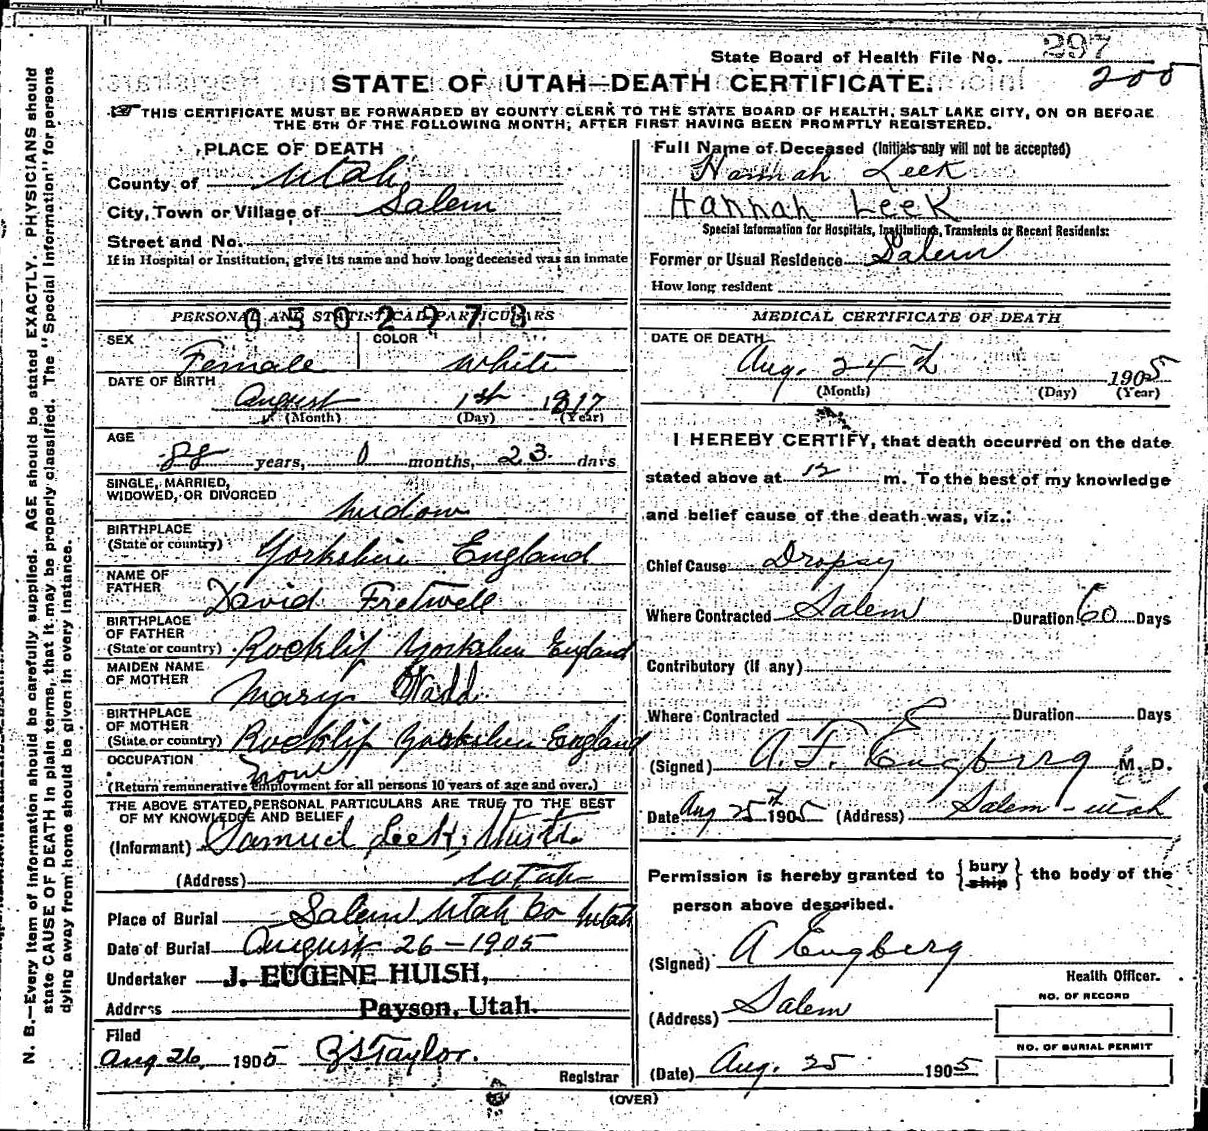 State Board of Health File No. 297
200
STATE OF UTAH—DEATH CERTIFICATE.
THIS CERTIFICATE MUST BE FORWARDED BY COUNTY CLERK TO THE STATE BOARD OF HEALTH, SALT LAKE CITY, ON OR BEFORE
THE 5TH OF THE FOLLOWING MONTH, AFTER FIRST HAVING BEEN PROMPTLY REGISTERED.
N. B.—Every item of information should be carefully supplied. AGE should be stated EXACTLY. PHYSICIANS should
state CAUSE OF DEATH in plain terms, that it may be properly classified. The "Special Information" for persons
dying away from home should be given in every instance.
PLACE OF DEATH
County of Utah
City, Town or Village of Salem
Street and No.
If in Hospital or Institution, give its name and how long deceased was an inmate
PERSONAL AND STATISTICAL PARTICULARS
0502978
SEX Female COLOR white
DATE OF BIRTH August 1st 1817
(Month) (Day) (Year)
AGE
88 years, 0 months, 23 days
SINGLE, MARRIED,
WIDOWED, OR DIVORCED widow
BIRTHPLACE
(State or country) Yorkshire England
NAME OF
FATHER David Fretwell
BIRTHPLACE
OF FATHER
(State or country) Rocklif Yorkshire England
MAIDEN NAME
OF MOTHER Mary Wadd
BIRTHPLACE
OF MOTHER
(State or country) Rocklif Yorkshire England
OCCUPATION None
(Return remunerative employment for all persons 10 years of age and over.)
THE ABOVE STATED PERSONAL PARTICULARS ARE TRUE TO THE BEST
OF MY KNOWLEDGE AND BELIEF
(Informant) Samuel Leek,
(Address) Utah
Place of Burial Salem Utah Co Utah
Date of Burial August 26-1905
Undertaker J. EUGENE HUISH,
Address Payson, Utah.
Filed
Aug 26, 1905 Taylor.
Registrar
Full Name of Deceased (Initials only will not be accepted)
Hannah Leek
Hannah Leek
Special Information for Hospitals, Institutions, Transients or Recent Residents:
Former or Usual Residence Salem
How long resident
MEDICAL CERTIFICATE OF DEATH
DATE OF DEATH
Aug. 24th 1905
(Month) (Day) (Year)
I HEREBY CERTIFY, that death occurred on the date
stated above at 12 m. To the best of my knowledge
and belief cause of the death was, viz.:
Chief Cause Dropsy
Where Contracted Salem Duration 60 Days
Contributory (if any)
Where Contracted Duration Days
(Signed) A. F. Engberg M. D.
Date Aug 25th 1905 (Address) Salem - Utah
Permission is hereby granted to {bury ship} the body of the
person above described.
(Signed) A Engberg
Health Officer.
(Address) Salem
NO. OF RECORD
NO. OF BURIAL PERMIT
(Date) Aug. 25 1905
(OVER)